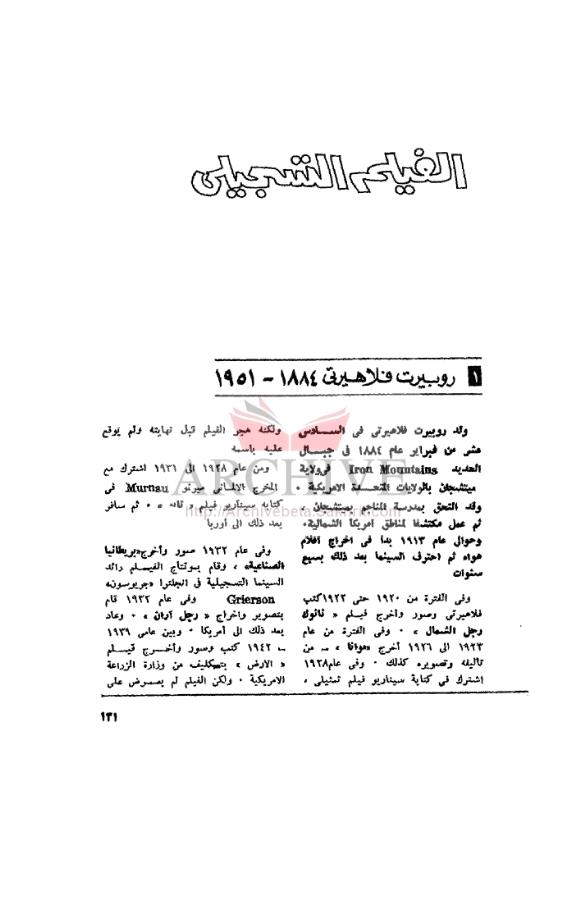 الفيلم التسجيلى
١ روبيرت فلاهيرتى ١٨٨٤ - ١٩٥١
ولد روبيرت فلاهيرتى فى السادس
عشر من فبراير عام ١٨٨٤ فى جبال
الحديد Iron Mountains فى ولاية
ميتشجان بالولايات المتحدة الامريكية ٠
وقد التحق بمدرسة المناجم بميتشجان ،
ثم عمل مكتشفا لمناطق أمريكا الشمالية٠
وحوالى عام ١٩١٣ بدا فى اخراج افلام
هواه ثم احترف السينما بعد ذلك بسبع
سنوات
وفى الفترة من ١٩٢٠ حتى ١٩٢٢ كتب
فلاهيرتى وصور واخرج فيلم « نانوك
رجل الشمال » ٠ وفى الفترة من عام
١٩٢٣ الى ١٩٢٦ أخرج «موانا » ــ من
تاليفه وتصويره كذلك ٠ وفى عام ١٩٢٨
اشترك فى كتابة سيناريو فيلم تمثيلى ،
ولكنه هجر الفيلم قبل نهايته ولم يوقع
عليه باسمه
ومن عام ١٩٢٨ الى ١٩٣١ اشترك مع
المخرج الالمانى ميرنو Murnau فى
كتابة سيناريو فيلم « تابو » ٠ ثم سافر
بعد ذلك الى أوربا
وفى عام ١٩٣٢ صور وأخرج«بريطانيا
الصناعية» ، وقام بونتاج الفيلم رائد
السينما التسجيلية فى انجلترا «جويرسون»
Grierson وفى عام ١٩٣٢ قام
بتصوير واخراج « رجل آران » ٠ وعاد
بعد ذلك الى أمريكا ٠ وبين عامى ١٩٣٩
ــ ١٩٤٢ كتب وصور وأخرج فيلم
« الارض » بتكليف من وزارة الزراعة
الامريكية ٠ ولكن الفيلم لم يعرض على
١٣١
ARCHIVE